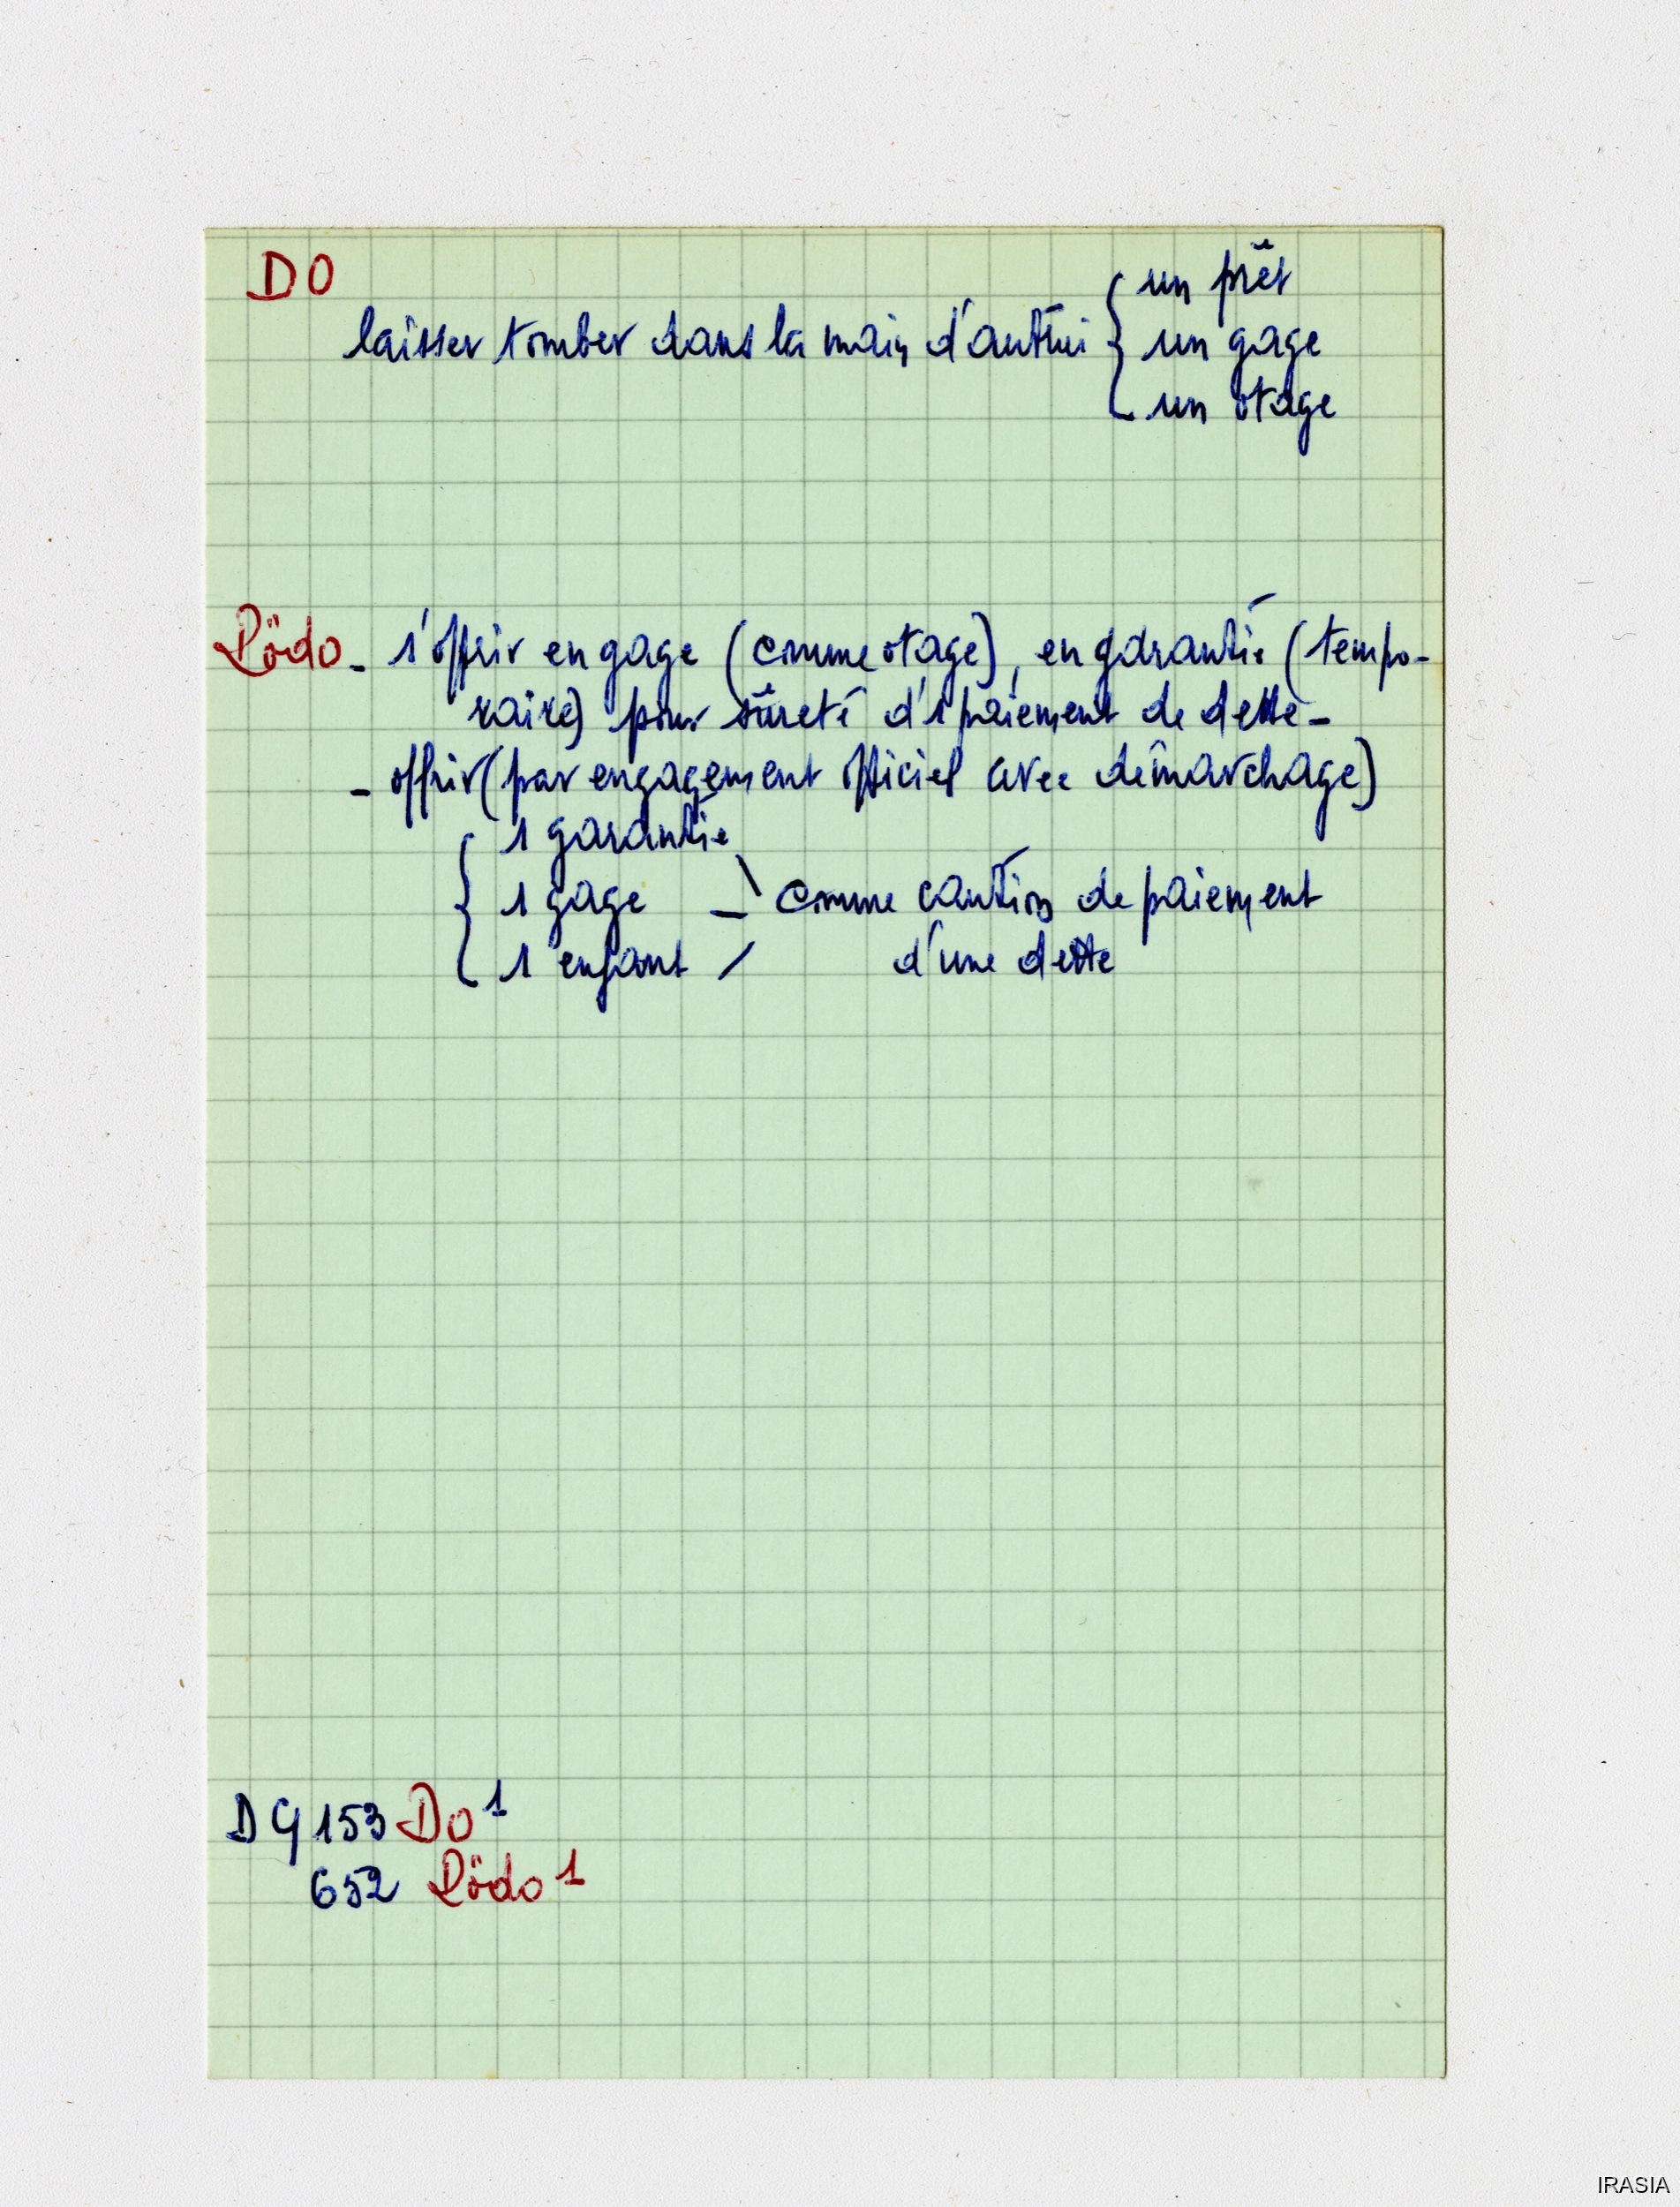 DO
un prêt
laisser tomber dans la main d'autrui { un gage
un otage
Rödo - s'offrir en gage (comme otage), en garantie (tempo-
raire) pour sûreté d'1 paiement de dette -
- offrir (par engagement officiel avec démarchage)
1 garantie
{ 1 gage — comme caution de paiement
1 enfant / d'une dette
DG 153 Do 1
652 Rödo 1
IRASIA